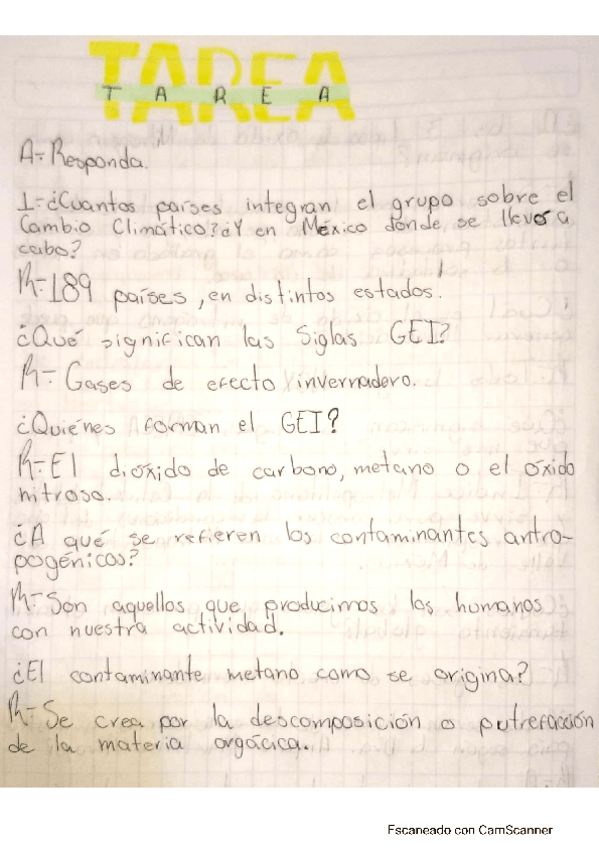 TAREA
T A R E A
A= Responda.
1=¿Cuantos países integran el grupo sobre el
Cambio Climático?¿Y en México donde se llevos a
cabo?
R=189 países, en distintos estados.
¿Qué significan las Siglas GEI?
R= Gases de efecto invernadero.
¿Quiénes forman el GEI?
R=El dióxido de carbono, metano o el óxido
nitroso.
¿A qué se refieren los contaminantes antro-
pogénicos?
R=Son aquellos que producimos los humanos
con nuestra actividad.
¿El contaminante metano como se origina?
R=Se crea por la descomposición o putrefacción
de la materia orgácica.
Escaneado con CamScanner